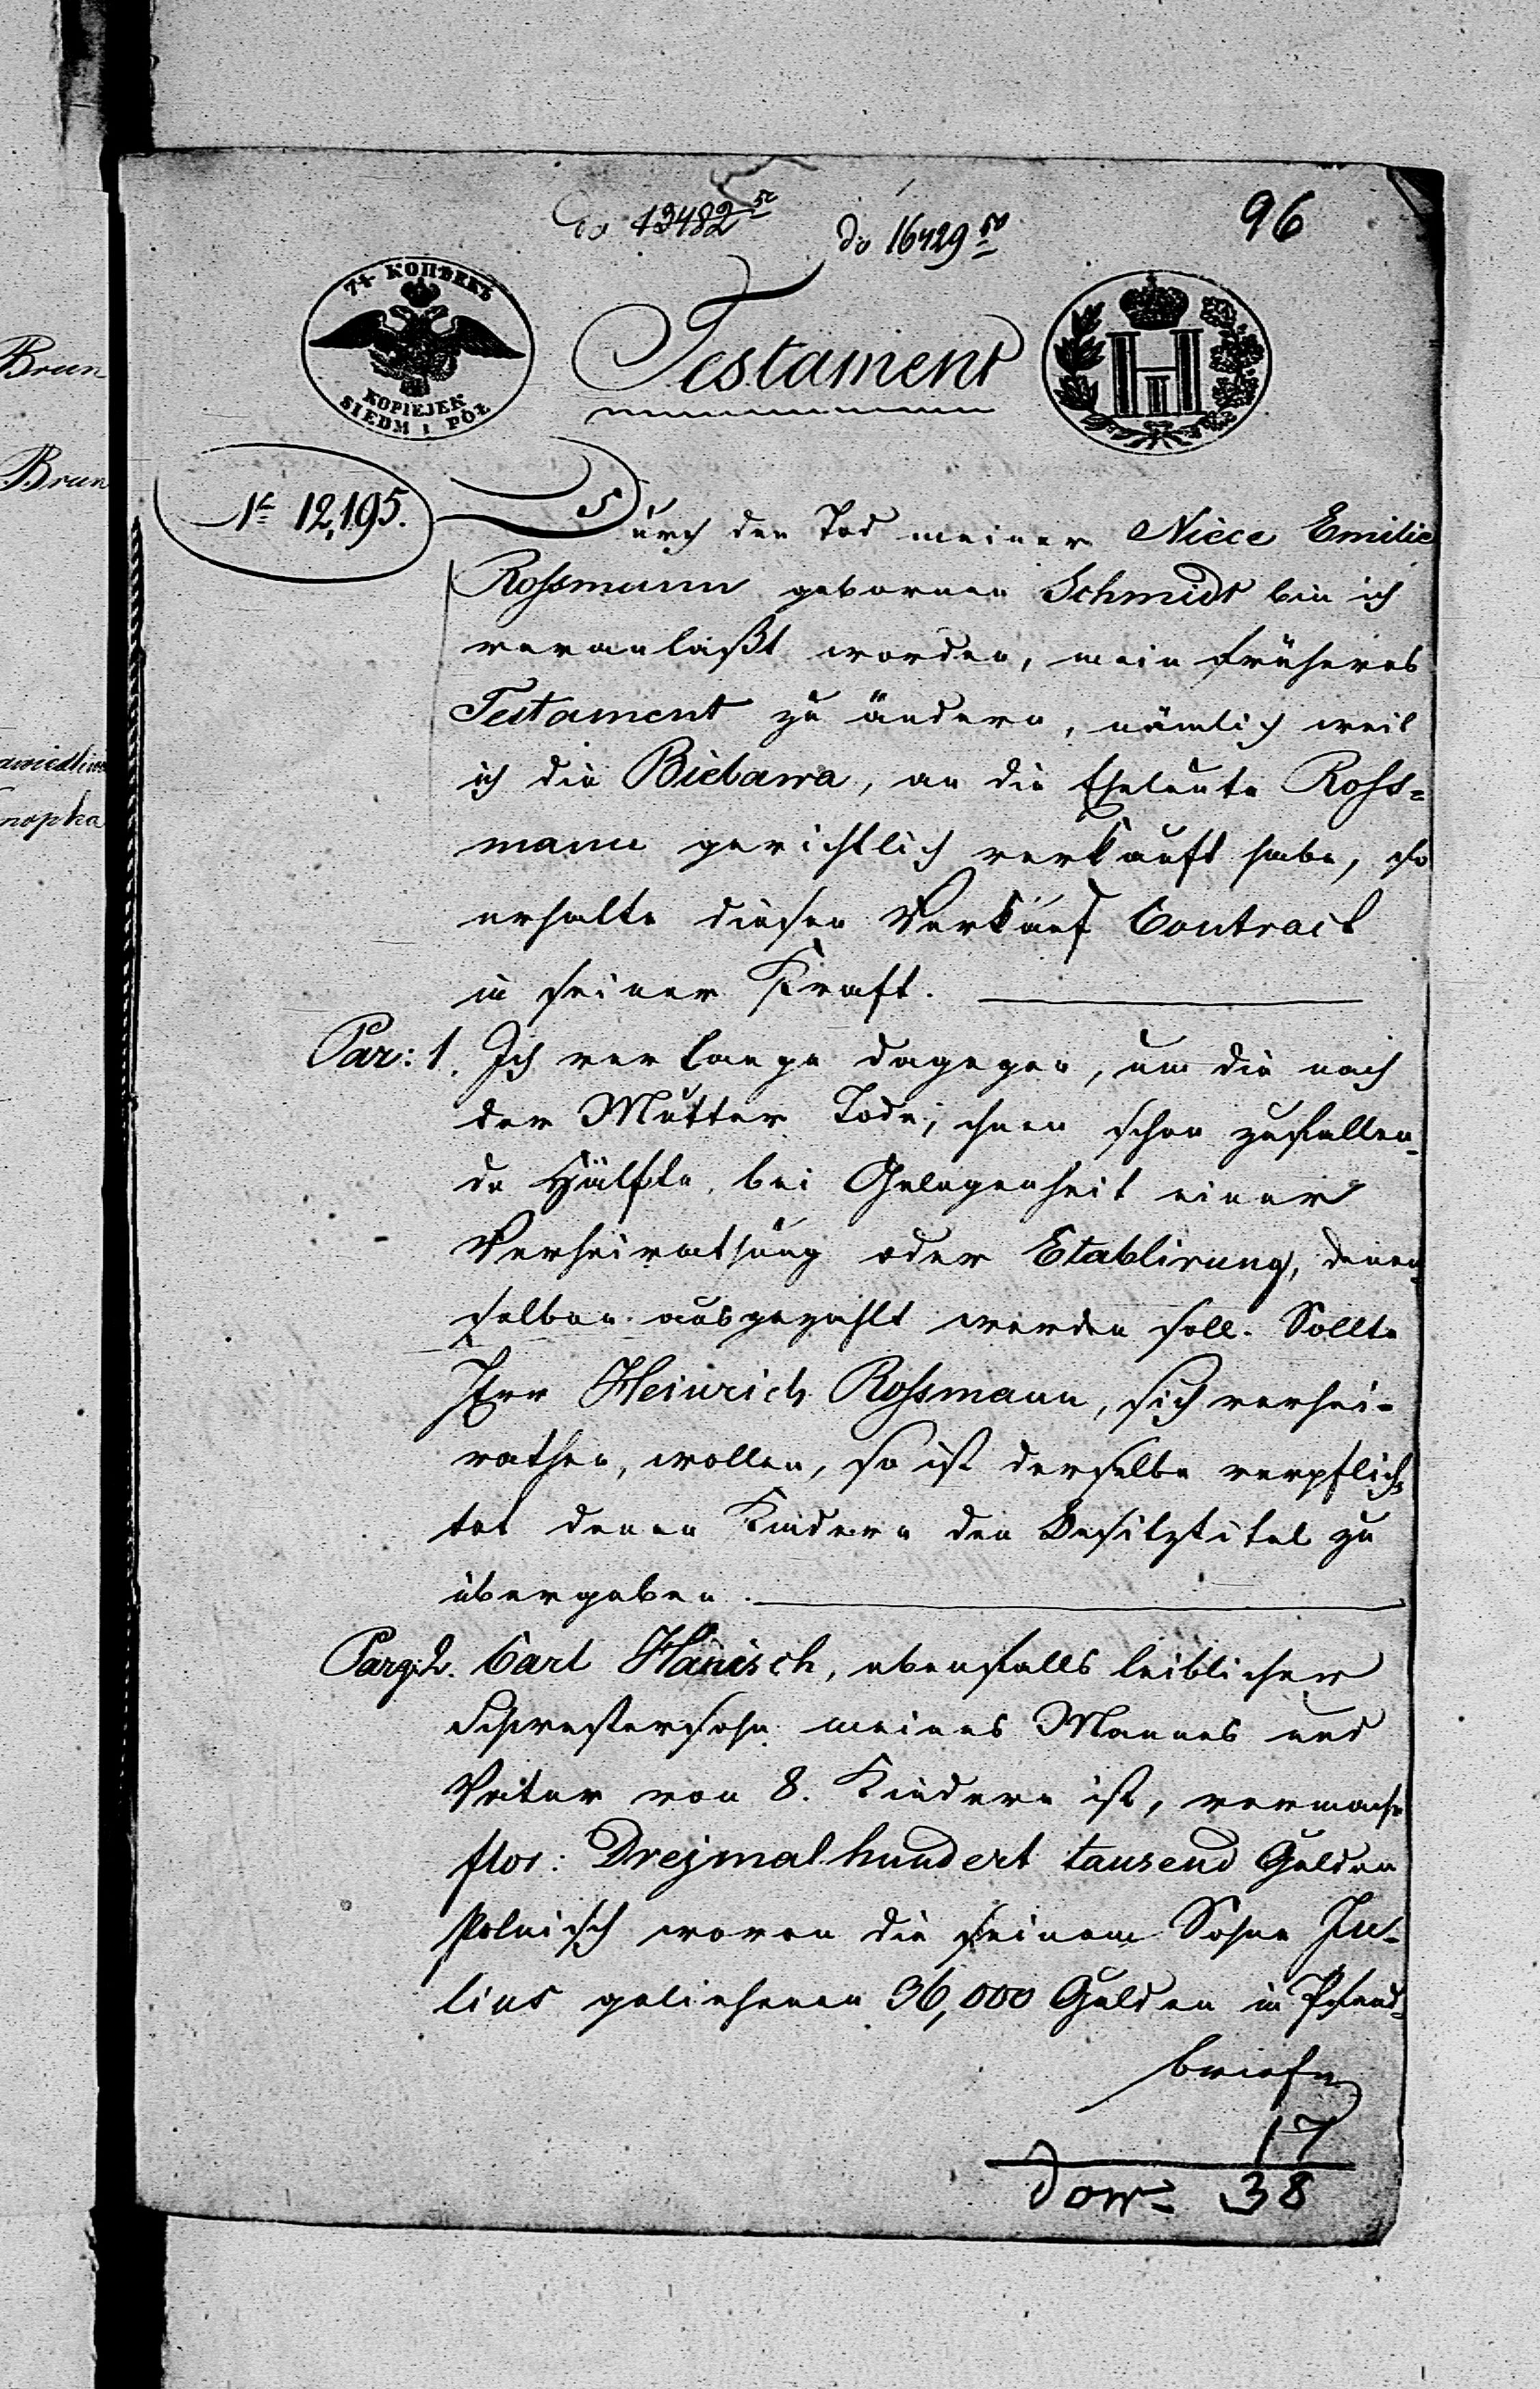 do 13482 50
do 16429 50
96
7½ КОПѢЕКЪ
KOPIEJEK
SIEDM I PÓŁ
Testament
Brun
Brun
nopka
Nr 12,195.
Durch den Tod meiner Niece Emilie
Rossmann gebornen Schmidt bin ich
veranlaßt worden, mein früheres
Testament zu ändern, nämlich weil
ich die Bielawa, an die Eheleute Ross=
mann gerichtlich verkauft habe, so
erhalte diesen Verkauf Contract
in seiner Kraft.
Par: 1. Ich verlange dagegen, um die nach
der Mutter Tode, ihnen schon zufallen-
de Hälfte, bei Gelegenheit einer
Verheirathung oder Etablirung, denen-
selben ausgezahlt werden soll. Sollte
Herr Heinrich Rossmann, sich verhei-
rathen, wollen, so ist derselbe verpflich-
tet denen Kindern den Besitztitel zu
übergeben.
Parg: 2. Carl Hänisch, ebenfalls leiblicher
Schwestersohn meines Mannes und
Vater von 8. Kindern ist, vermache
flor: Dreymal hundert tausend Gulden
Polnisch wovon die seinem Sohne Ju-
lius geliehenen 36,000 Gulden in Pfand-
briefen
17
38